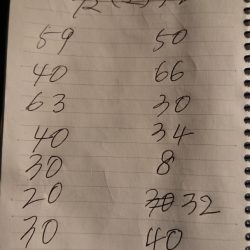 59 50
40 66
63 30
40 34
30 8
20 32
30 40